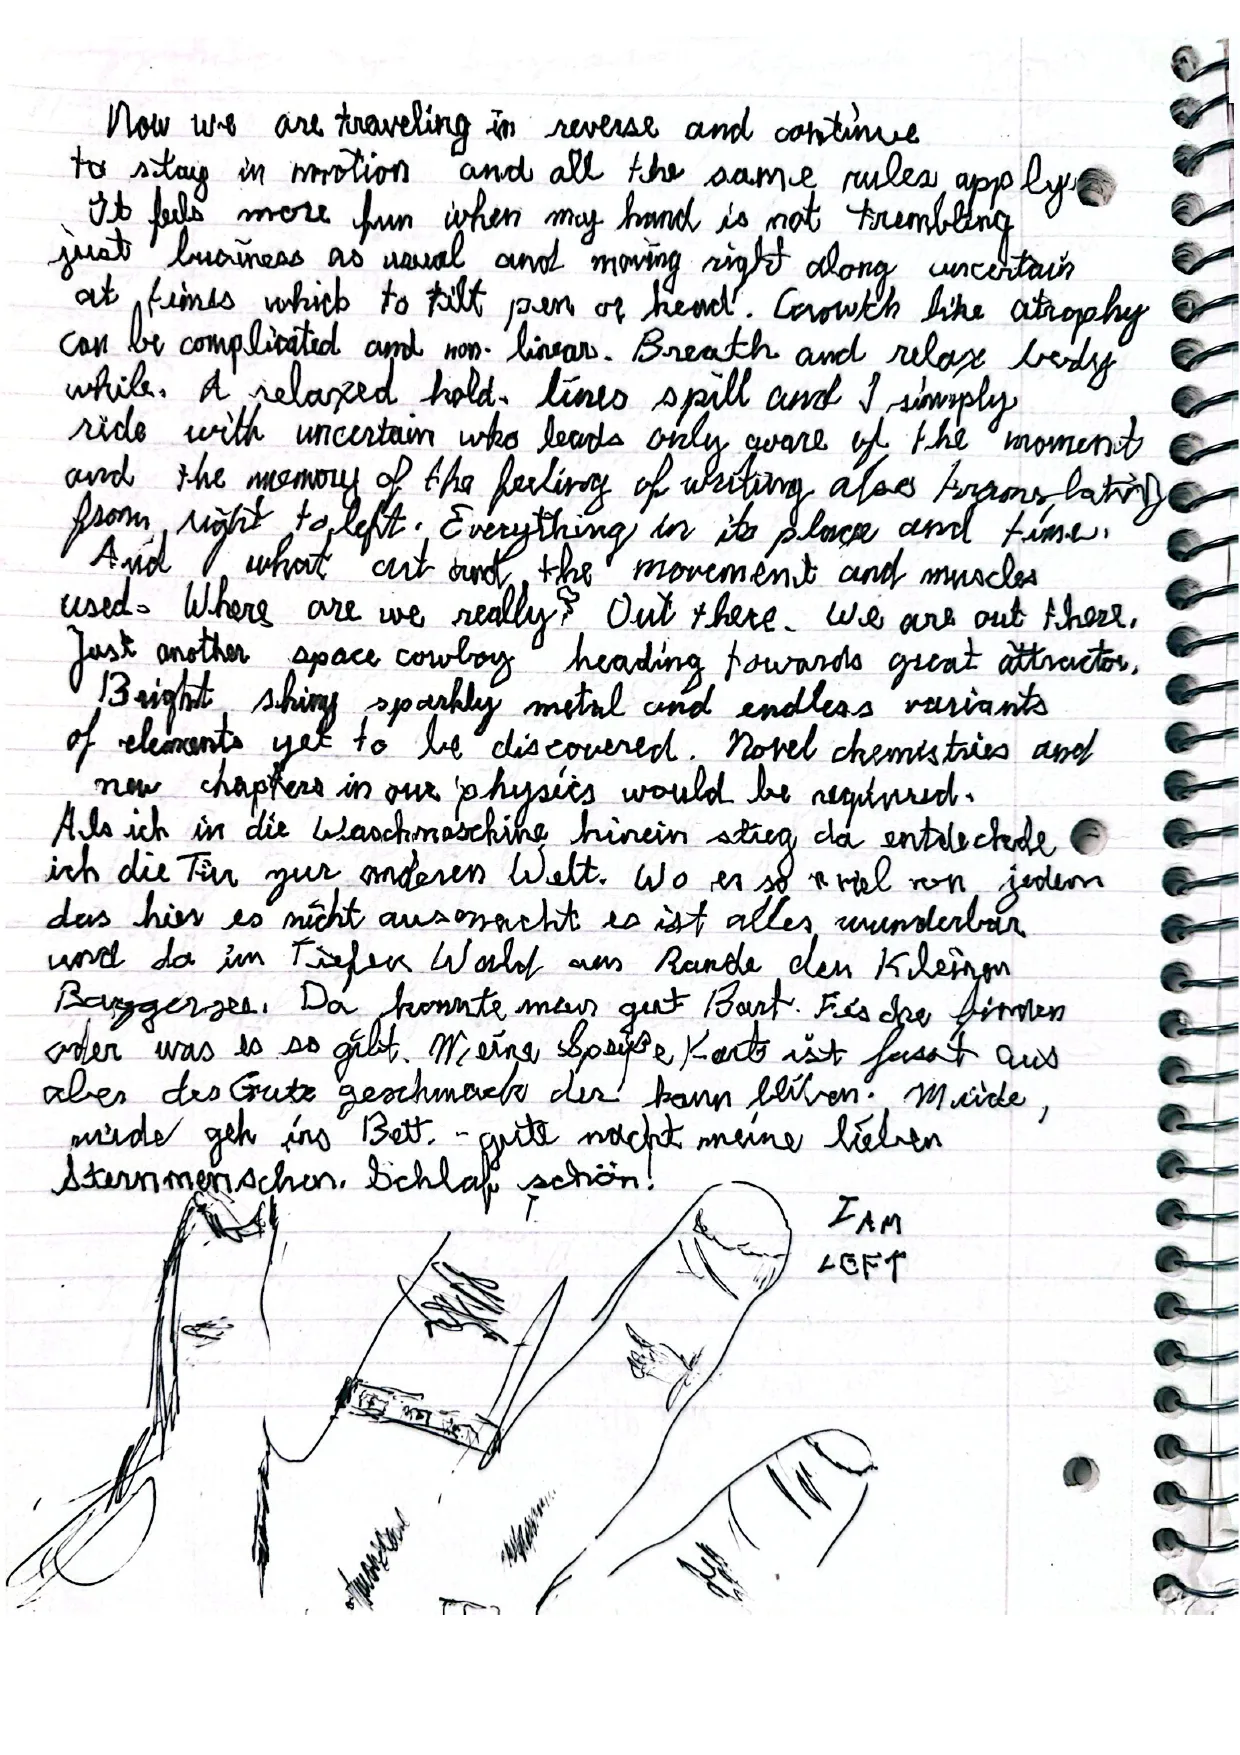 Now we are traveling in reverse and continue
to stay in motion and all the same rules apply.
It feels more fun when my hand is not trembling
just business as usual and moving right along uncertain
at times which to tilt pen or head. Growth like atrophy
can be complicated and non-linear. Breath and relax body
while. A relaxed hold. lines spill and I simply
ride with uncertain who leads only aware of the moment
and the memory of the feeling of writing also translating
from right to left. Everything in its place and time.
And what art and the movement and muscles
used. Where are we really? Out there. We are out there.
Just another space cowboy heading towards great attractor.
Bright shiny sparkly metal and endless variants
of elements yet to be discovered. Novel chemistries and
new chapters in our physics would be required.
Als ich in die Waschmaschine hinein stieg da entdeckde
ich die Tür zur anderen Welt. Wo es so viel von jedem
das hier es nicht ausmacht es ist alles wunderbar
und da im Tiefen Wald am Rande den Kleinen
Baggersee. Da konnte man gut Bart. Fische finden
oder was es so gibt. Meine Speiße Karte ist fasst aus
aber des Gute geschmack der kann bliben. Müide,
müde geh ins Bett. - gute nacht meine lieben
Sternmenschen. Schlaf schön!
I AM
LEFT